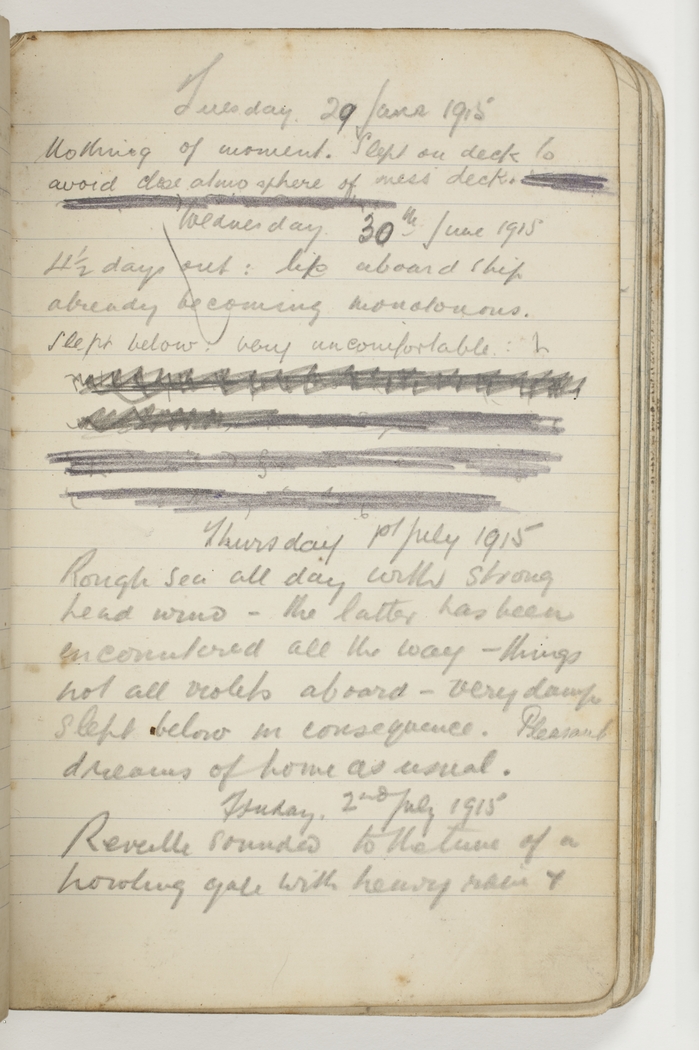 Tuesday 29 June 1915
Nothing of moment. Slept on deck to
avoid close atmosphere of mess deck.
Wednesday 30th June 1915
4½ days out: life aboard ship
already becoming monotonous.
Slept below: very uncomfortable:
Thursday 1st July 1915
Rough sea all day with strong
head wind – the latter has been
encountered all the way – things
not all violets aboard – very damp
Slept below in consequence. Pleasant
dreams of home as usual.
Friday. 2nd July 1915
Reveille sounded to the tune of a
howling gale with heavy rain &